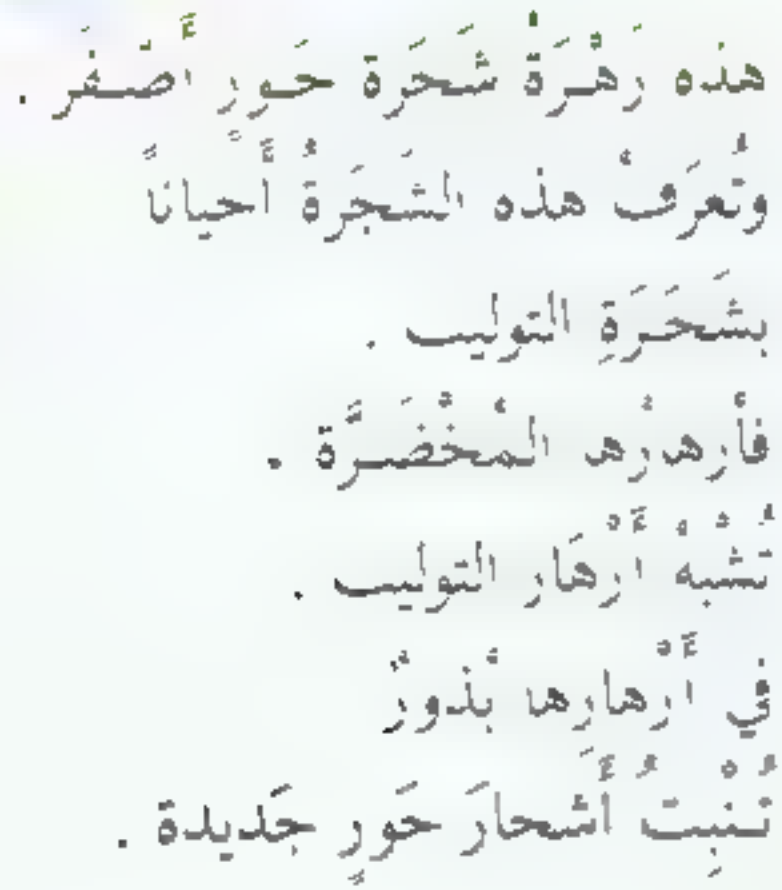 هذه زَهْرَةُ شَجَرَة حَورٍ أَصْفَر .
وتُعرَفُ هذه الشَجَرَةُ أَحياناً
بشَجَرَةِ التوليب .
المُخْضَرَّة .
تُشْبِهُ أَزْهَار التوليب .
في أَزْهارِها بُذورٌ
تُنْبِتُ أَشجارَ حَورٍ جَديدة .